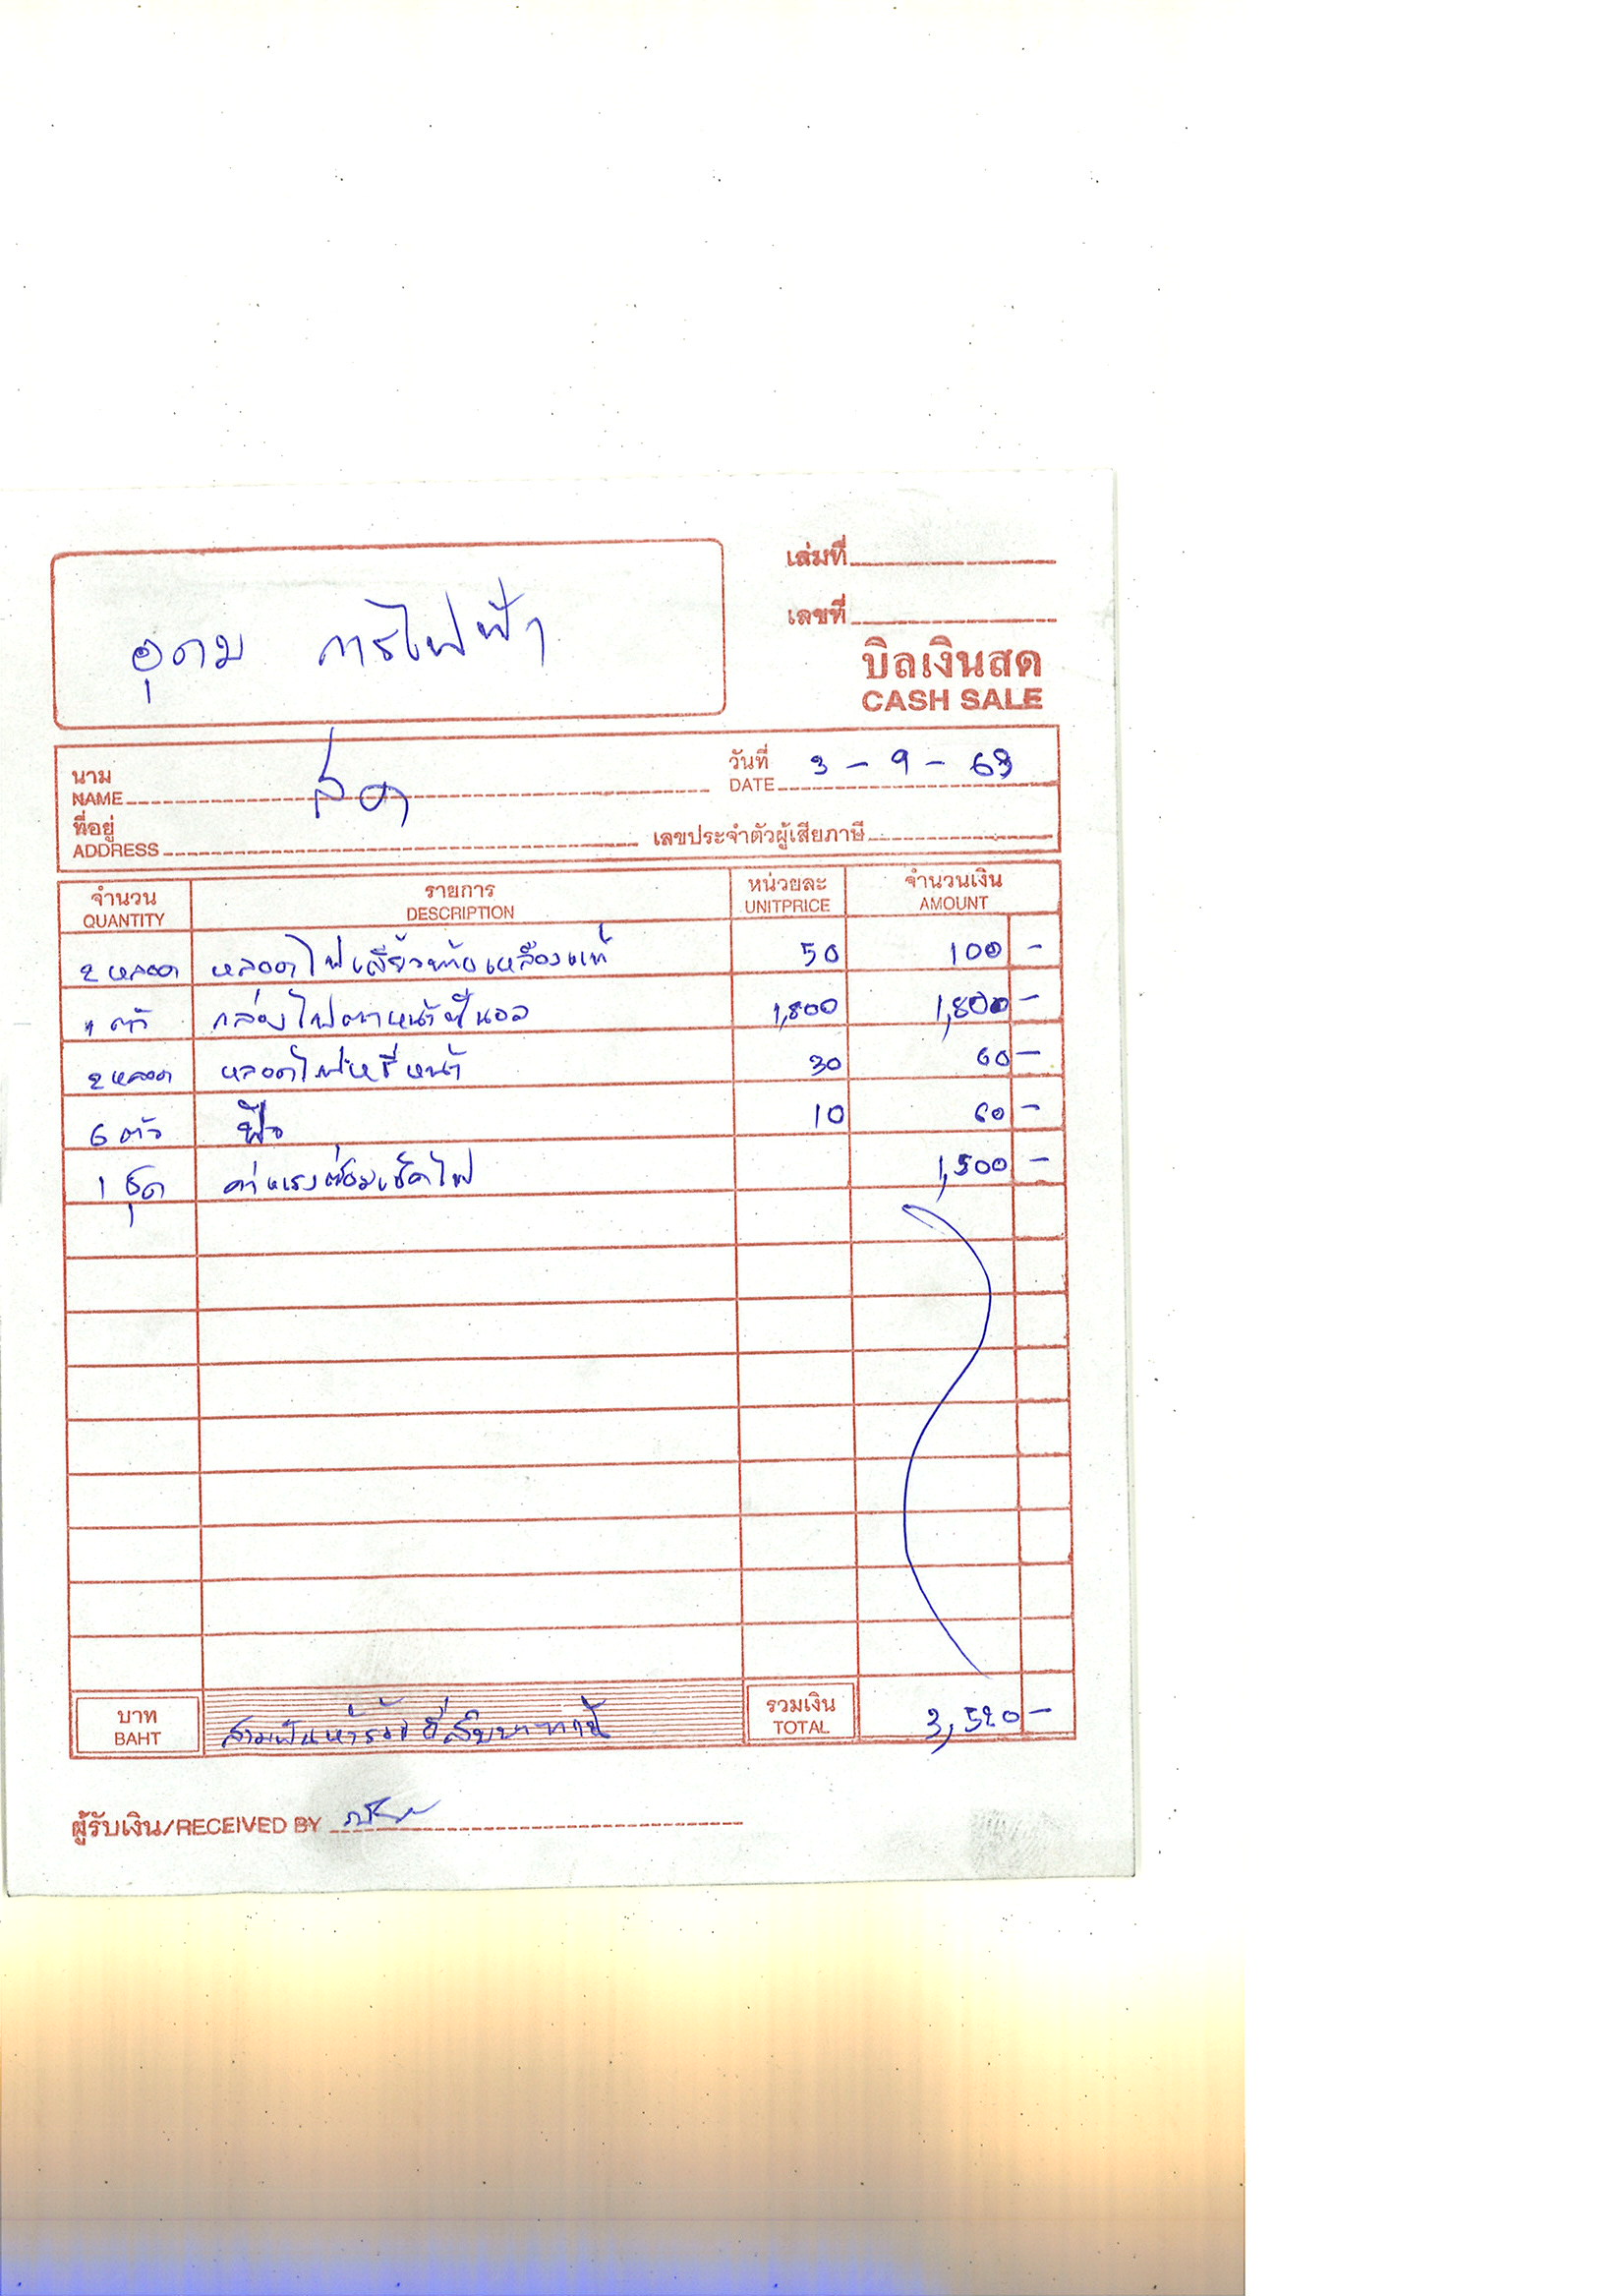 เล่มที่
เลขที่
อุดม การไฟฟ้า
บิลเงินสด
CASH SALE
นาม
NAME
วันที่ 3 - 9 - 63
DATE
ที่อยู่
ADDRESS
เลขประจำตัวผู้เสียภาษี
จำนวน รายการ หน่วยละ จำนวนเงิน
QUANTITY DESCRIPTION UNITPRICE AMOUNT
2 หลอด หลอดไฟเลี้ยวท้ายเหลืองแท้ 50 100 -
1 ตัว กล่องไฟตาหน้า 1,800 1,800 -
2 หลอด หลอดไฟหรี่หน้า 30 60 -
6 ตัว ฟิว 10 60 -
1 ชุด ค่าแรงซ่อมเช็คไฟ 1,500 -
บาท สามพันห้าร้อยยี่สิบบาทถ้วน รวมเงิน 3,520 -
BAHT TOTAL
ผู้รับเงิน/RECEIVED BY